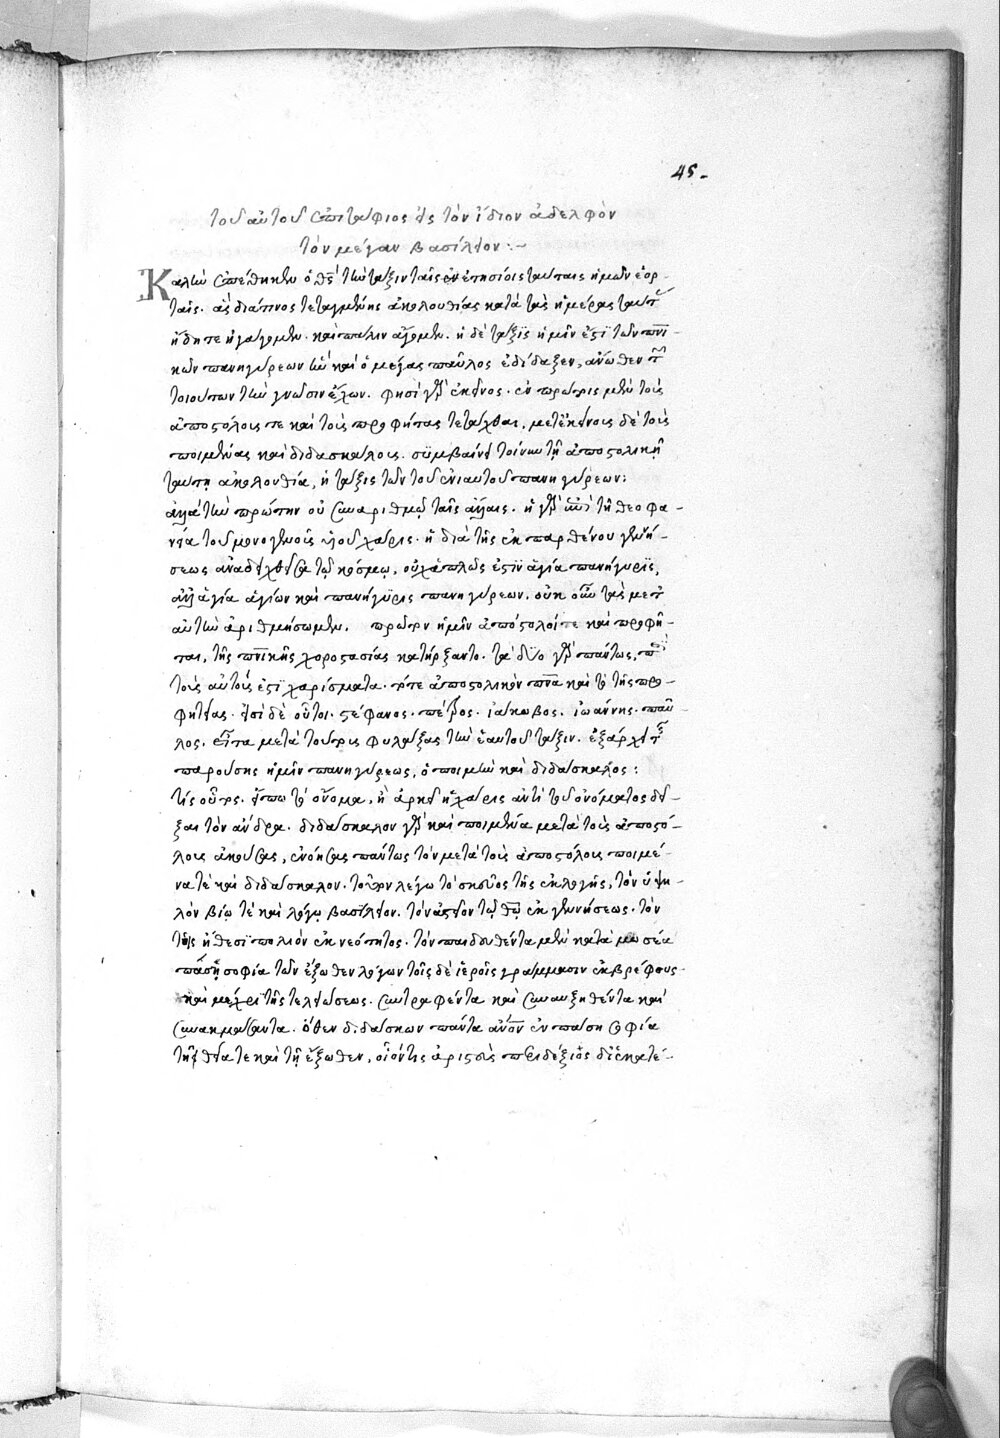 45.
τοῦ αὐτοῦ ἐπιτάφιος εἰς τὸν ἴδιον ἀδελφὸν
τὸν μέγαν βασίλειον :~
Καλὴν ἐπέθηκεν ὁ θς τὴν τάξιν ταῖς ἐτησίοις ταύταις ἡμῶν ἑορ-
ταῖς. ἃς διά τινος τεταγμένης ἀκολουθίας κατὰ τὰς ἡμέρας ταύτ
ἤδη τε ἠγάγομεν. καὶ πάλιν ἄγομεν. ἡ δὲ τάξις ἡμῖν ἐστὶ τῶν πνι-
κῶν πανηγύρεων ἣν καὶ ὁ μέγας παῦλος ἐδίδαξεν, ἄνωθεν τ
τοιούτων τὴν γνῶσιν ἔχων. φησὶ γὰρ ἐκεῖνος. ἐν πρώτοις μὲν τοὺς
ἀποστόλους τε καὶ τοὺς προφήτας τετάχθαι, μετ' ἐκείνους δὲ τοὺς
ποιμένας καὶ διδασκάλους. συμβαίνει τοίνυν τῇ ἀποστολικῇ
ταύτῃ ἀκολουθία, ἡ τάξις τῶν τοῦ ἐνιαυτοῦ πανηγύρεων:
ἀλλὰ τὴν πρώτην οὐ συναριθμῶ ταῖς ἄλλαις. ἡ γὰρ ἐπὶ τῇ θεοφα-
νεία τοῦ μονογενοῦς υἱοῦ χάρις. ἡ διὰ τῆς ἐκ παρθένου γεννή-
σεως ἀναδειχθεῖσα τῷ κόσμῳ, οὐχ ἁπλῶς ἐστὶν ἁγία πανήγυρις,
ἀλλ' ἁγία ἁγίων καὶ πανήγυρις πανηγύρεων. οὐκ οὖν τὰς μετ
αὐτὴν ἀριθμήσωμεν. πρῶτον ἡμῖν ἀπόστολοί τε καὶ προφῆ-
ται, τῆς πνικῆς χοροστασίας κατήρξαντο. τὰ δύο γὰρ πάντως,
τοὺς αὐτοὺς ἐστι χαρίσματα. τότε ἀποστολικὸν πνα καὶ τὸ τῆς προ-
φητείας. εἰσὶ δὲ οὗτοι. στέφανος. πέτρος. ἰάκωβος. ἰωάννης. παῦ-
λος. εἶτα μετὰ τούτοις φυλάξας τὴν ἑαυτοῦ τάξιν. ἐξάρχει τ
παρούσης ἡμῖν πανηγύρεως, ὁ ποιμὴν καὶ διδάσκαλος:
τίς οὗτος. εἴπω τὸ ὄνομα, ἢ ἀρκεῖ ἡ χάρις ἀντὶ τοῦ ὀνόματος δεῖ-
ξαι τὸν ἄνδρα. διδάσκαλον γὰρ καὶ ποιμένα μετὰ τοὺς ἀποστό-
λους ἀκούσας, ἐνόησας πάντως τὸν μετὰ τοὺς ἀποστόλους ποιμέ-
να τὲ καὶ διδάσκαλον. τοῦτον λέγω τὸ σκεῦος τῆς ἐκλογῆς, τὸν ὑψη-
λὸν βίῳ τὲ καὶ λόγῳ βασίλειον. τὸν ἀστεῖον τῷ θῷ ἐκ γεννήσεως. τὸν
τοῖς ἤθεσι πολιὸν ἐκ νεότητος. τὸν παιδευθέντα μὲν κατὰ μωσέα
πάσῃ σοφία τῶν ἔξωθεν λόγων τοῖς δὲ ἱεροῖς γράμμασιν ἐκ βρέφους
καὶ μέχρι τῆς τελειώσεως. συντραφέντα καὶ συναυξηθέντα καὶ
συνακμάσαντα. ὅθεν διδάσκων πάντα ἄνον ἐν πάση σοφία
τῇ θεία τε καὶ τῇ ἔξωθεν, οἷόν τις ἀριστεὺς περιδέξιος δι' ἑκατέ-